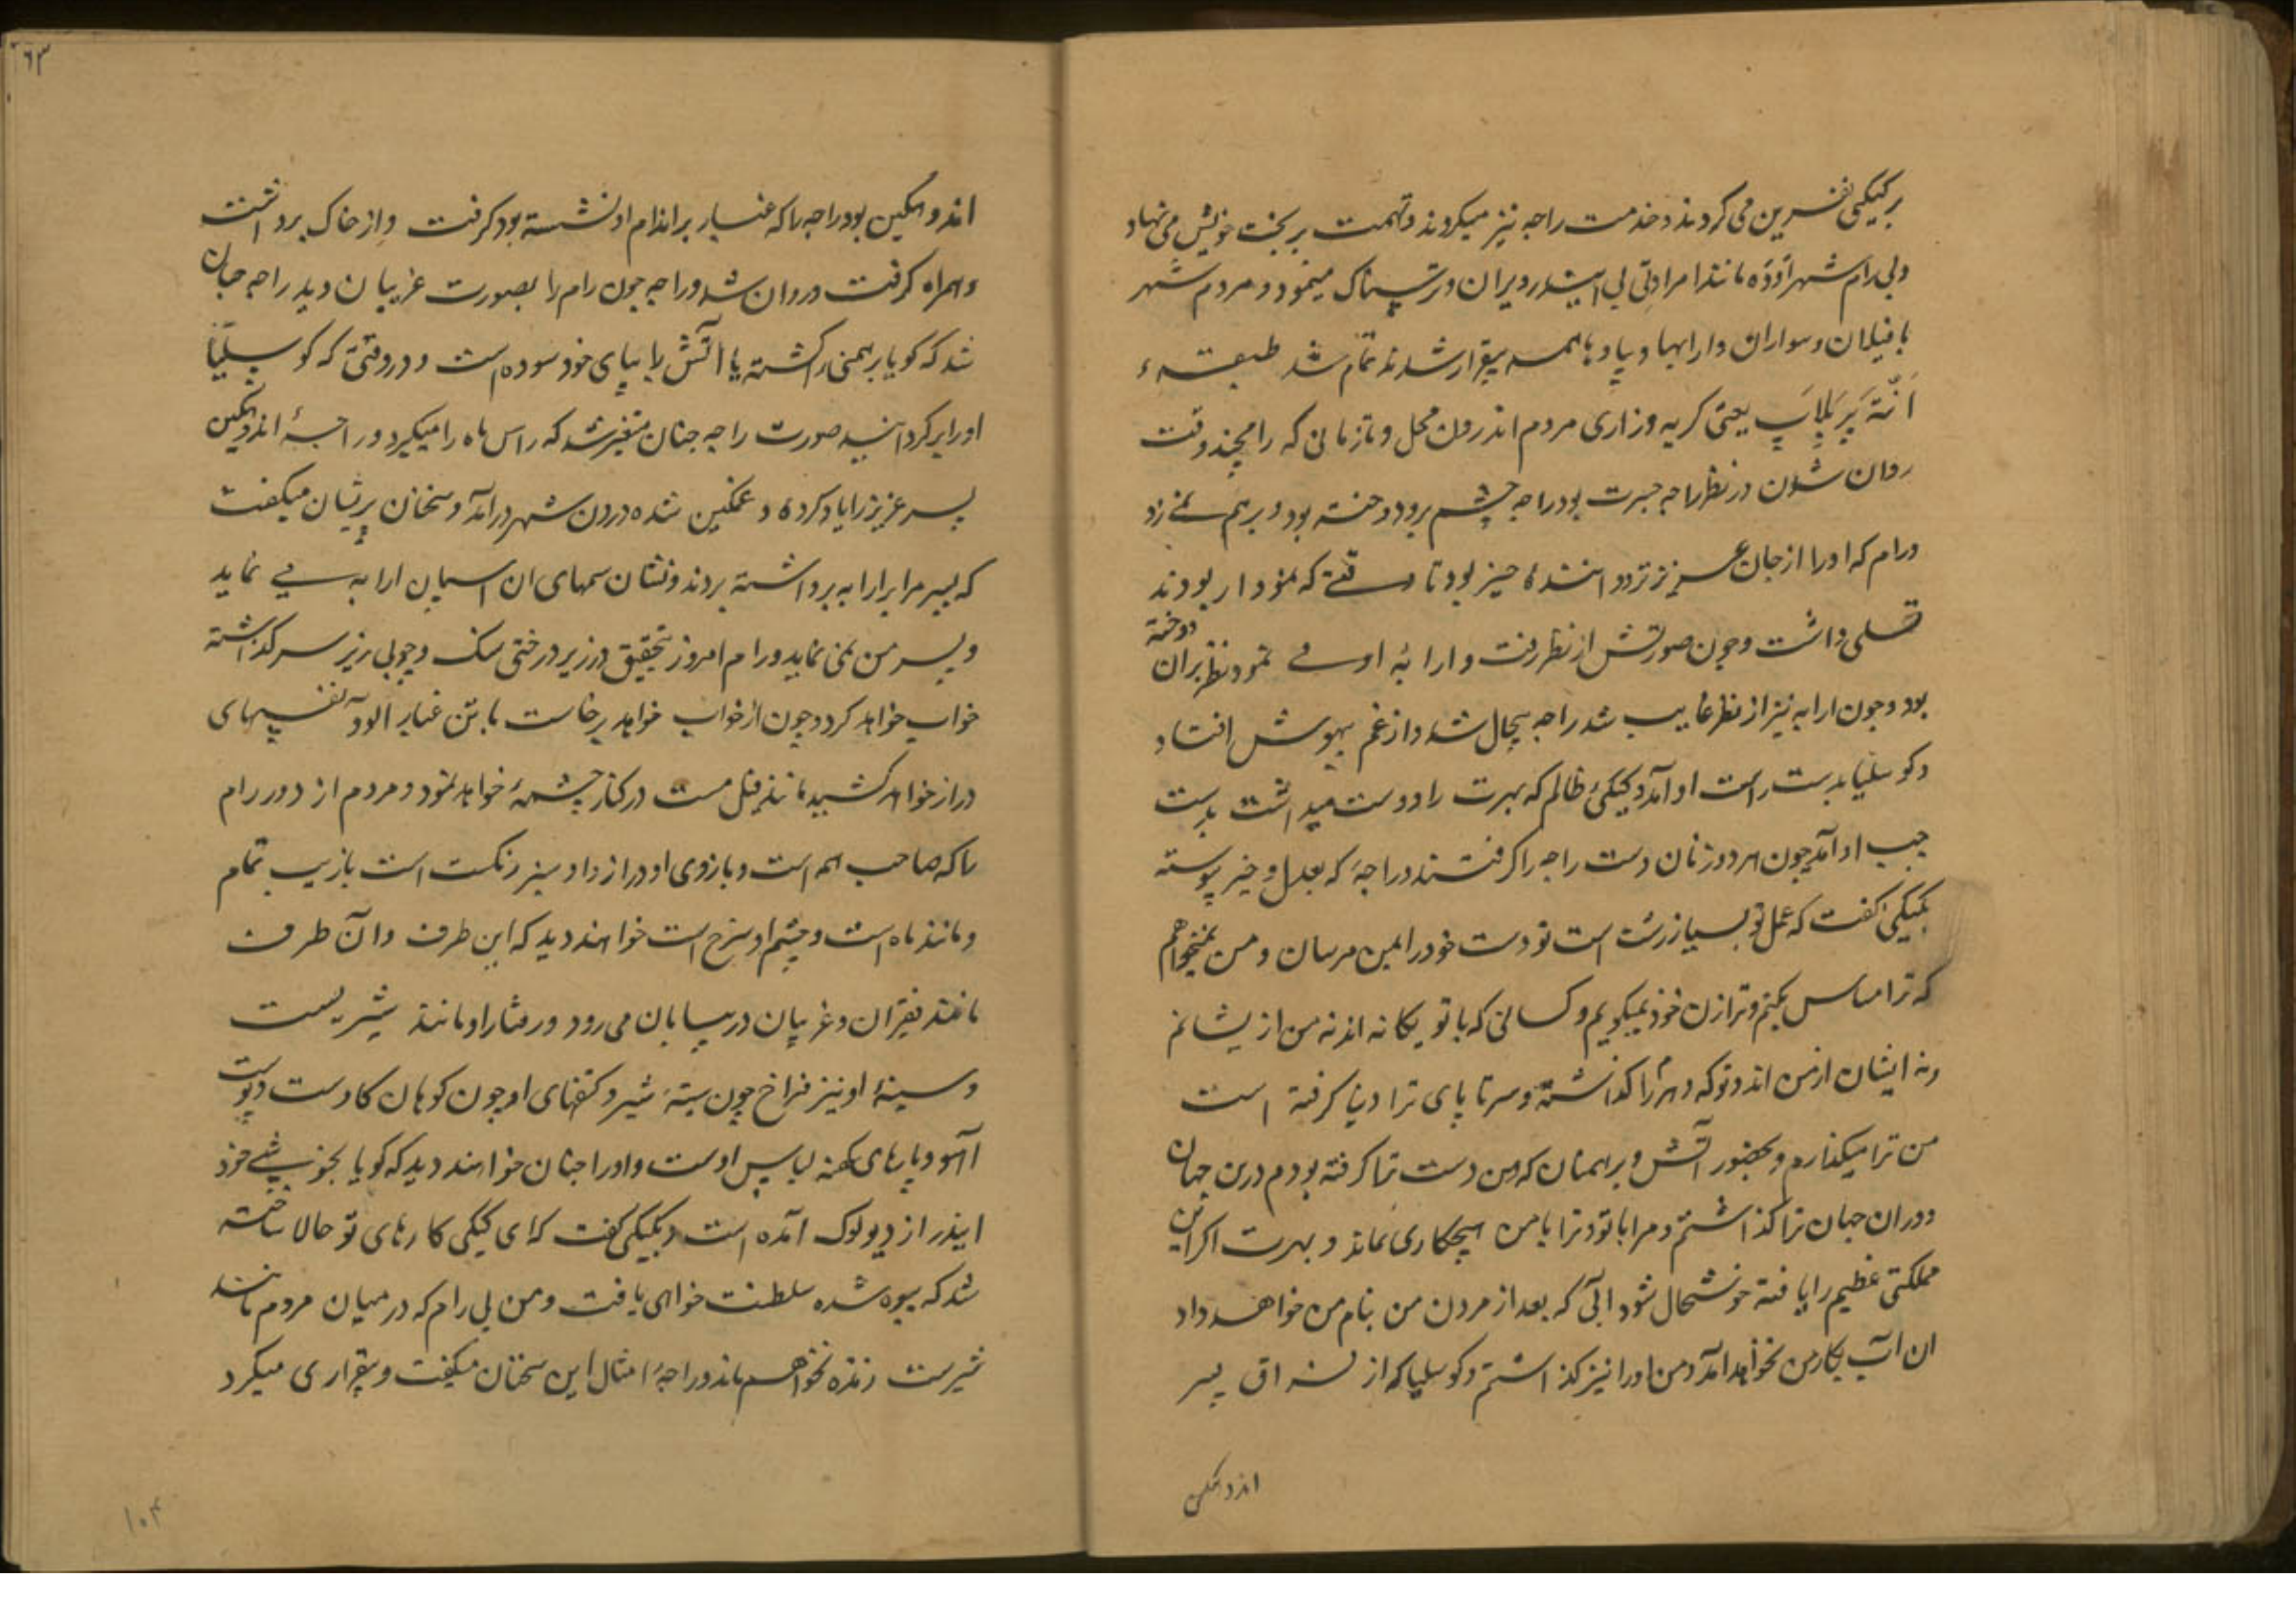 بر کیکئی نفرین می کردند و خدمت راجه نیز میکردند و تهمت بر بخت خویش می نهاد
و بی رام شهر اوده مانند امراوتی بی ایندر ویران و ترسناک مینمود و مردم شهر
با فیلان و سواران و ارابها و پیادها همه بیقرار شدند تمام شد طبقۀ
انته پر بلاپ یعنی کریه و زاری مردم اندرون محل و تا زمانی که رامچند وقت
روان شدن در نظر راجه جسرت بود راجه چشم برو دوخته بود و برهم نمی زد
و رام که او را از جان عزیزتر دانسته بود تا وقتی که نمودار بودند
تسلی داشت و چون صورتش از نظر رفت و ارابۀ او می نمود نظر بران دوخته
بود و چون ارابه نیز از نظر غایب شد راجه بیحال شد و از غم بیهوش افتاد
و کوسلیا بدست راست او آمد و کیکئ ظالم که بهرت را دوست میداشت بدست
چپ او آمد چون هر دو زنان دست راجه را کرفتند و راجه که بعدل و خیر پیوسته
بکیکی کفت که عمل تو بسیار زشت است تو دست خود را بمن مرسان و من نمیخواهم
که ترا مساس بکنم و ترا زن خود نمیکویم و کسانی که با تو یکانه اند نه من از یشانم
و نه ایشان از من اند و تو که دهرم را کذاشتۀ و سر تا پای ترا دنیا کرفته است
من ترا میکذارم و بحضور آتش و برهمنان که من دست ترا کرفته بودم درین جهان
و دران جهان ترا کذاشتم و مرا با تو و ترا با من هیچکاری نماند و بهرت اکر این
مملکتی عظیم را یافته خوشحال شود آبی که بعد از مردن من بنام من خواهد داد
ان آب بکار من نخواهد آمد و من او را نیز کذاشتم و کوسلیا که از فراق پسر
اندوهکین
٦٣
اندوهکین بود راجه را که غبار بر اندام او نشسته بود کرفت و از خاک برداشت
و همراه کرفت و روان شد و راجه چون رام را بصورت غریبان دید راجه چنان
شد که کویا برهمنی را کشته یا آتش را بپای خود سوده است و در وقتی که کوسلیا
او را بر کردانید صورت راجه چنان متغیر شد که راس ماه را میکیرد و راجۀ اندوهکین
پسر عزیز را یاد کرده و غمکین شده درون شهر درآمد و سخنان پریشان میکفت
که پسر مرا بر ارابه برداشته بردند و نشان سمهای ان اسپان ارابه می نماید
و پسر من نمی نماید و رام امروز بتحقیق در زیر درختی سنک و چوبی زیر سر کذاشته
خواب خواهد کرد و چون از خواب خواهد برخاست با تن غبار آلود نفسهای
دراز خواهد کشید مانند فیل مست در کنار چشمۀ خواهد نمود و مردم از دور رام
را که صاحب همه است و بازوی او دراز و او سبز رنکست است بازیب تمام
و مانند ماه است و چشم او سرخ است خواهند دید که این طرف و آن طرف
مانند فقیران و غریبان در بیابان می رود و رفتار او مانند شیریست
و سینۀ او نیز فراخ چون سینۀ شیر و کتفهای او چون کوهان کاوست و پوست
آهو و پارهای کهنه لباس اوست و او را چنان خواهند دید که کویا بخوشی خود
ایندر از دیولوک آمده است و بکیکی کفت که ای کیکی کارهای تو حالا ساخته
شد که بیوه شده سلطنت خواهی یافت و من بی رام که در میان مردم مانند
شیرست زنده نخواهم ماند و راجه امثال این سخنان میکفت و بیقراری میکرد
۱۰۴